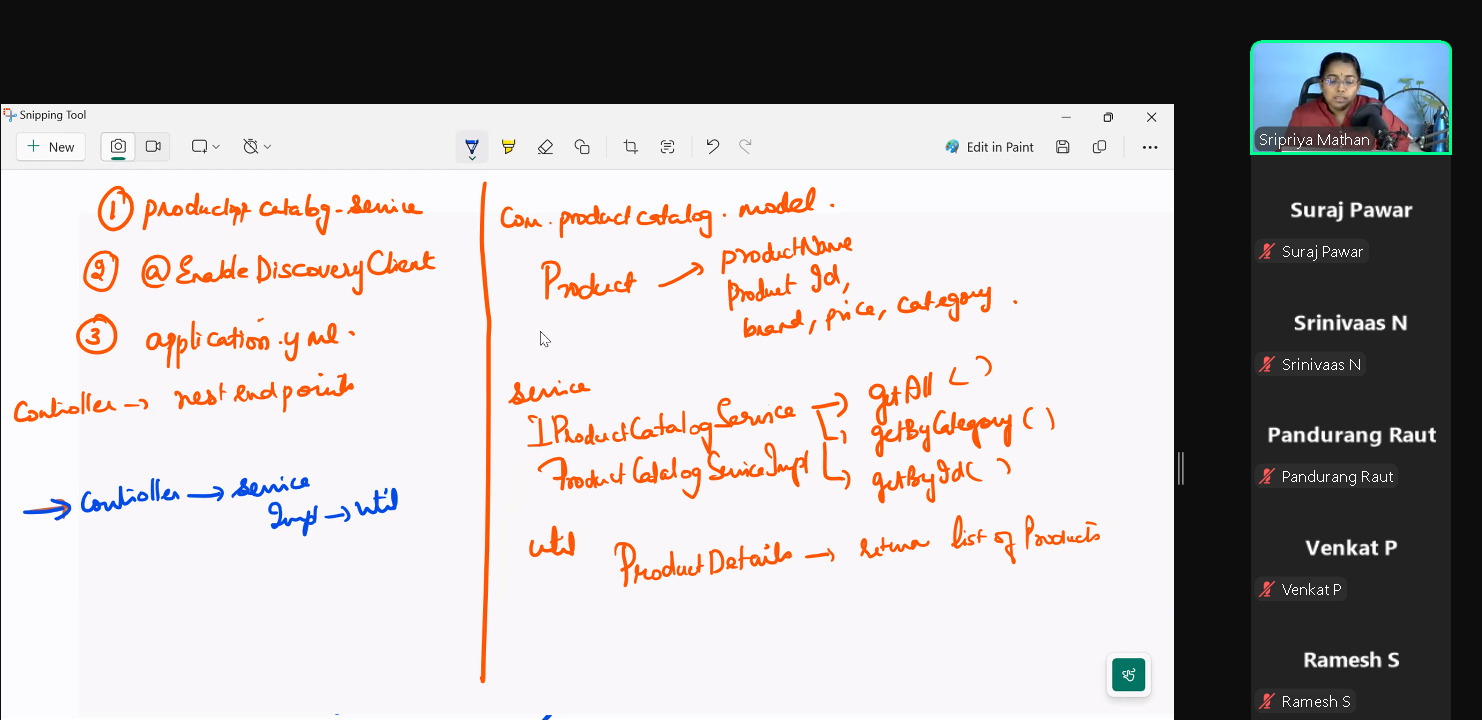 Snipping Tool
New
Edit in Paint
① product catalog-service
② @EnableDiscoveryClient
③ application.yml.
Controller → rest endpoints
→ Controller → service
Impl → util
com.productcatalog.model.
Product → productName
Product Id,
brand, price, category.
service
IProductCatalogService → getAll ()
getByCategory ()
ProductCatalogServiceImpl → getById()
util
ProductDetails → return list of Products
Sripriya Mathan
Suraj Pawar
Suraj Pawar
Srinivaas N
Srinivaas N
Pandurang Raut
Pandurang Raut
Venkat P
Venkat P
Ramesh S
Ramesh S